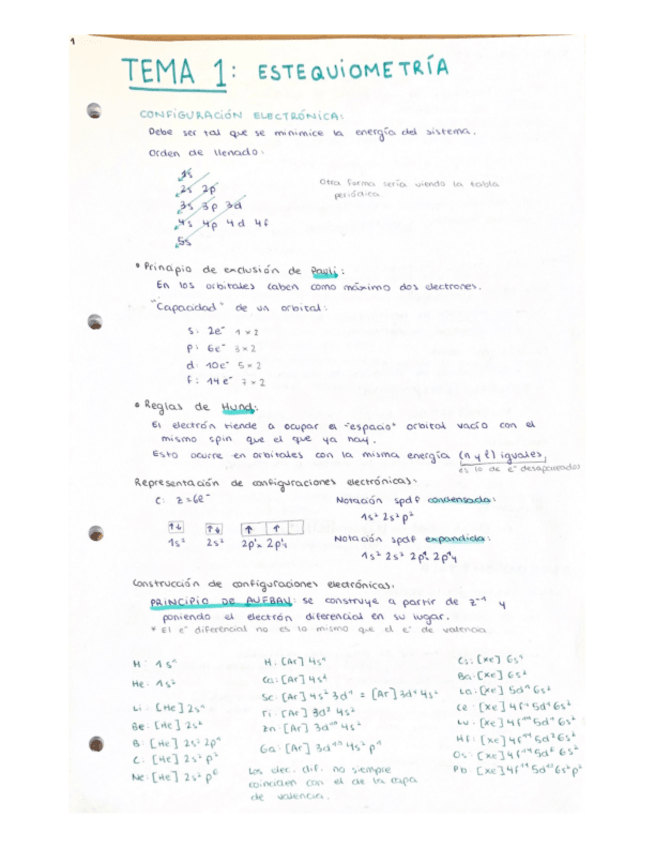 1
TEMA 1: ESTEQUIOMETRÍA
CONFIGURACIÓN ELECTRÓNICA:
Debe ser tal que se minimice la energía del sistema.
Orden de llenado:
1s
2s 2p
3s 3p 3d
4s 4p 4d 4f
5s
Otra forma sería viendo la tabla
periódica
• Principio de exclusión de Pauli:
En los orbitales caben como máximo dos electrones.
"Capacidad" de un orbital:
s: 2e⁻ 1×2
p: 6e⁻ 3×2
d: 10e⁻ 5×2
f: 14e⁻ 7×2
• Reglas de Hund:
El electrón tiende a ocupar el "espacio" orbital vacío con el
mismo spin que el que ya hay.
Esto ocurre en orbitales con la misma energía (n y l) iguales,
es lo de e⁻ desapareados
Representación de configuraciones electrónicas:
C: z=6e⁻
1s² 2s² 2p¹x 2p¹y
Notación spdf condensada:
1s² 2s² p²
Notación spdf expandida:
1s² 2s² 2p¹x 2p¹y
Construcción de configuraciones electrónicas.
PRINCIPIO DE AUFBAU: se construye a partir de z-1 y
poniendo el electrón diferencial en su lugar.
* El e⁻ diferencial no es lo mismo que el e⁻ de valencia
H: 1s¹
He: 1s²
Li: [He] 2s¹
Be: [He] 2s²
B: [He] 2s² 2p¹
C: [He] 2s² p²
Ne: [He] 2s² p⁶
[Ar] 4s¹
Ca: [Ar] 4s²
Sc: [Ar] 4s² 3d¹ = [Ar] 3d¹ 4s²
Ti: [Ar] 3d² 4s²
Zn: [Ar] 3d¹⁰ 4s²
Ga: [Ar] 3d¹⁰ 4s² p¹
Los elec. dif. no siempre
coinciden con el de la capa
de valencia.
Cs: [Xe] 6s¹
Ba: [Xe] 6s²
La: [Xe] 5d¹ 6s²
Ce: [Xe] 4f¹ 5d¹ 6s²
Lu: [Xe] 4f¹⁴ 5d¹ 6s²
Hf: [Xe] 4f¹⁴ 5d² 6s²
Os: [Xe] 4f¹⁴ 5d⁶ 6s²
Pb: [Xe] 4f¹⁴ 5d¹⁰ 6s² p²